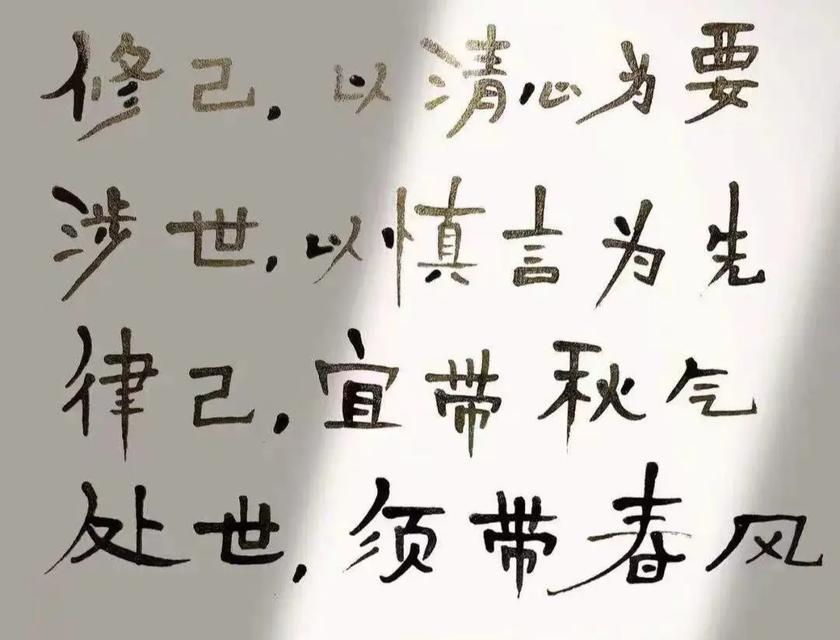 修己，以清心为要
涉世，以慎言为先
律己，宜带秋气
处世，须带春风